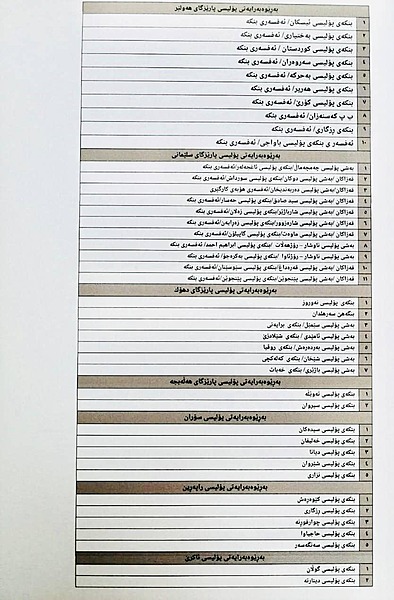 بەڕێوەبەرایەتی پۆلیسی پارێزگای هەولێر
١ بنکەی پۆلیسی ئیسکان/ ئەفسەری بنکە
٢ بنکەی پۆلیسی بەختیاری/ ئەفسەری بنکە
٣ بنکەی پۆلیسی کوردستان/ ئەفسەری بنکە
٤ بنکەی پۆلیسی سەروەران/ ئەفسەری بنکە
٥ بنکەی پۆلیسی بەحرکە/ ئەفسەری بنکە
٦ بنکەی پۆلیسی هەریر/ ئەفسەری بنکە
٧ بنکەی پۆلیسی گۆڕێ/ ئەفسەری بنکە
٨ ب پ کەسنەزان/ ئەفسەری بنکە
٩ بنکەی ڕزگاری/ ئەفسەری بنکە
١٠ ئەفسەری بنکەی پۆلیسی باواجی/ ئەفسەری بنکە
بەڕێوەبەرایەتی پۆلیسی پارێزگای سلێمانی
١ بەشی پۆلیسی چەمچەماڵ/بنکەی پۆلیسی ئاغجەلەر/ئەفسەری بنکە
٢ قەزاکان/بەشی پۆلیسی دوکان/بنکەی پۆلیسی سورداش/ئەفسەری بنکە
٣ قەزاکان/بەشی پۆلیسی دەربەندیخان/ئەفسەری هۆبەی کارگێری
٤ قەزاکان/بەشی پۆلیسی سید صادق/بنکەی پۆلیسی /ئەفسەری بنکە
٥ قەزاکان/بەشی پۆلیسی شارباژێر/بنکەی پۆلیسی زەلان/ئەفسەری بنکە
٦ قەزاکان/بەشی پۆلیسی شارەزوور/بنکەی پۆلیسی زەڕایەن/ئەفسەری بنکە
٧ قەزاکان/بەشی پۆلیسی ماوەت/بنکەی پۆلیسی گاپیلۆن/ئەفسەری بنکە
٨ بەشی پۆلیسی ناوشار – رۆژهەڵات /بنکەی پۆلیسی ابراهیم احمد/ئەفسەری بنکە
٩ بەشی پۆلیسی ناوشار – رۆژئاوا /بنکەی پۆلیسی بەکرەجۆ/ئەفسەری بنکە
١٠ قەزاکان/بەشی پۆلیسی قەرەداغ/بنکەی پۆلیسی سێوسێنان/ئەفسەری بنکە
١١ قەزاکان/بەشی پۆلیسی پێنجوێن/بنکەی پۆلیسی پێنجوێن/ئەفسەری بنکە
بەڕێوەبەرایەتی پۆلیسی پارێزگای دهۆک
١ بنکەی پۆلیسی نەوروز
٢ بنکەهێ سەرهلدان
٣ بەشی پۆلیسی سێمێل/ بنکەی برایەتی
٤ بەشی پۆلیسی ئامێدی / بنکەی شێلادزێ
٥ بەشی پۆلیسی بەردەڕەش/ بنکەی روڤیا
٦ بەشی پۆلیسی شێخان/ بنکەی کەلەکچی
٧ بەشی پۆلیسی باژێری/ بنکەی خەبات
بەڕێوەبەرایەتی پۆلیسی پارێزگای هەڵەبجە
١ بنکەی پۆلیسی تەوێڵە
٢ بنکەی پۆلیسی سیروان
بەڕێوەبەرایەتی پۆلیسی سۆران
١ بنکەی پۆلیسی سیدەکان
٢ بنکەی پۆلیسی خەلیفان
٣ بنکەی پۆلیسی دیانا
٤ بنکەی پۆلیسی شێروان
٥ بنکەی پۆلیسی نزاری
بەڕێوەبەرایەتی پۆلیسی راپەرین
١ بنکەی پۆلیسی کێوەڕەش
٢ بنکەی پۆلیسی رزگاری
٣ بنکەی پۆلیسی چوارقوڕنە
٤ بنکەی پۆلیسی حاجیاوا
٥ بنکەی پۆلیسی سەنگەسەر
بەڕێوەبەرایەتی پۆلیسی ئاکرێ
١ بنکەی پۆلیسی گوڵان
٢ بنکەی پۆلیسی دینارتە